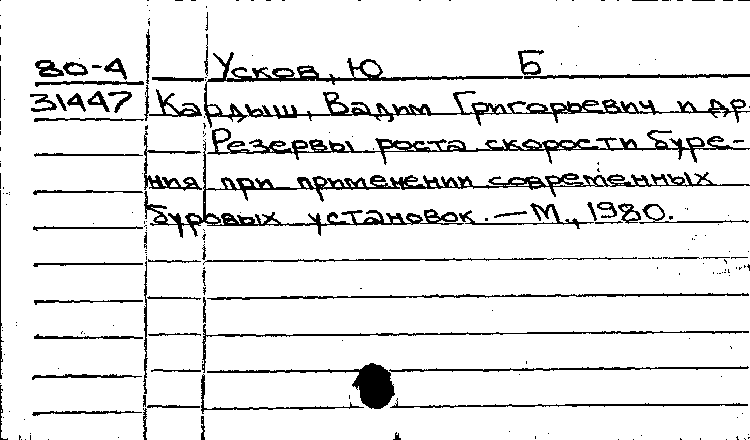 80-4 Усков, Ю Б
31447 Кардыш, Вадим Григорьевич и др
Резервы роста скорости буре-
ния при применении современных
буровых установок. — М., 1980.